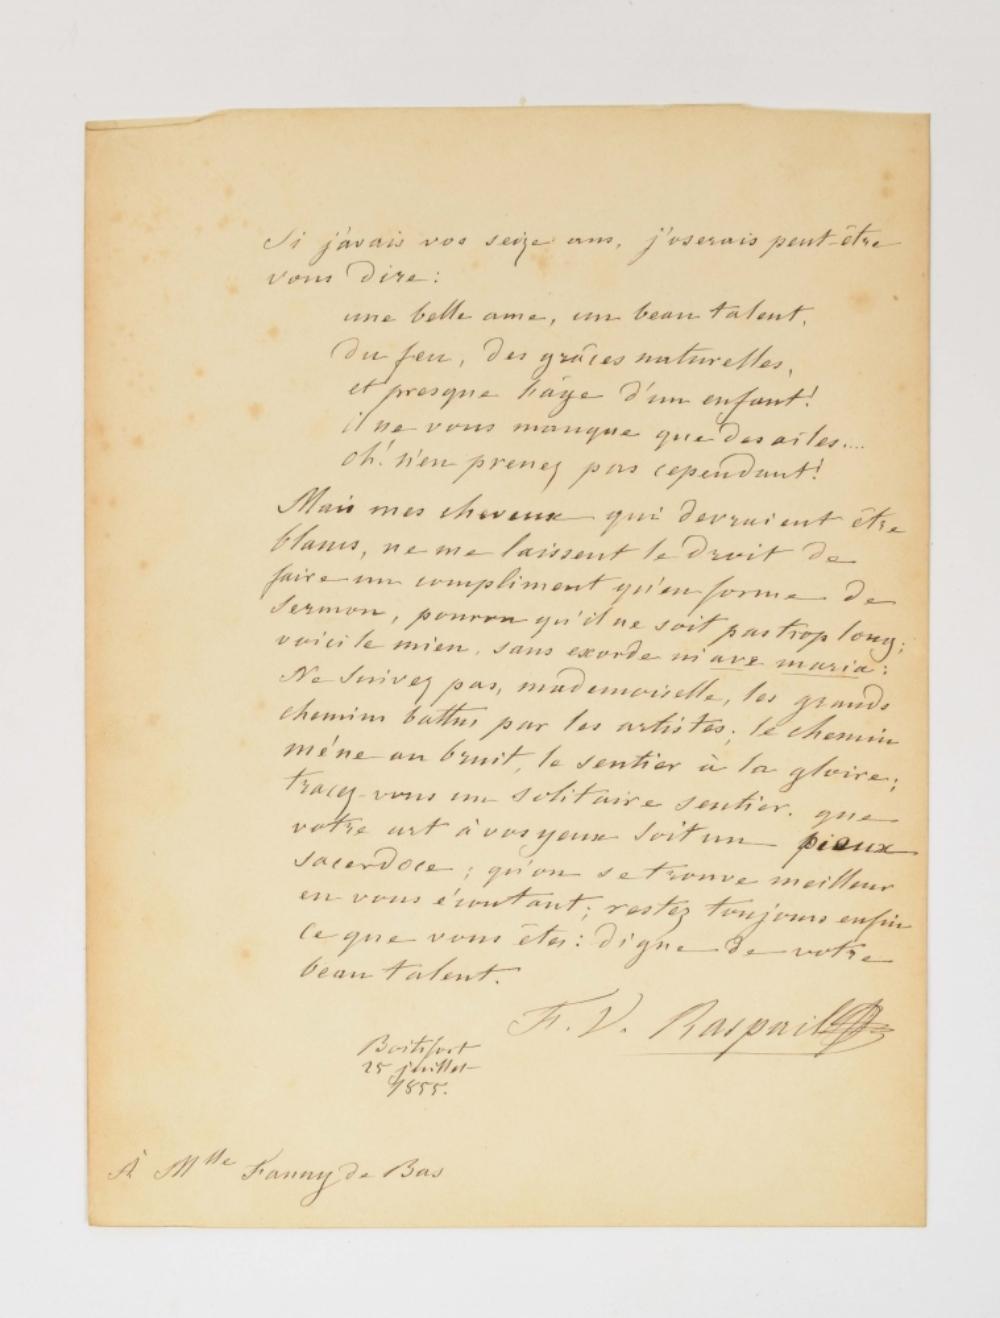 Si j'avais vos seize ans, j'oserais peut-être
vous dire:
une belle ame, un beau talent,
du feu, des grâces naturelles,
et presque l'âge d'un enfant!
il ne vous manque que des ailes....
oh! n'en prenez pas cependant!
Mais mes cheveux qui devraient être
blancs, ne me laissent le droit de
faire un compliment qu'en forme de
sermon, pourvu qu'il ne soit pas trop long;
voici le mien, sans exorde ni ave maria:
Ne suivez pas, mademoiselle, les grands
chemins battus par les artistes; le chemin
méne au bruit, le sentier à la gloire;
tracez-vous un solitaire sentier. que
votre art à vos yeux soit un pieux
sacerdoce; qu'on se trouve meilleur
en vous écoutant; restez toujours enfin
ce que vous êtes: digne de votre
beau talent.
F. V. Raspail
Boitsfort
25 juillet
1855.
À Mlle Fanny de Bas